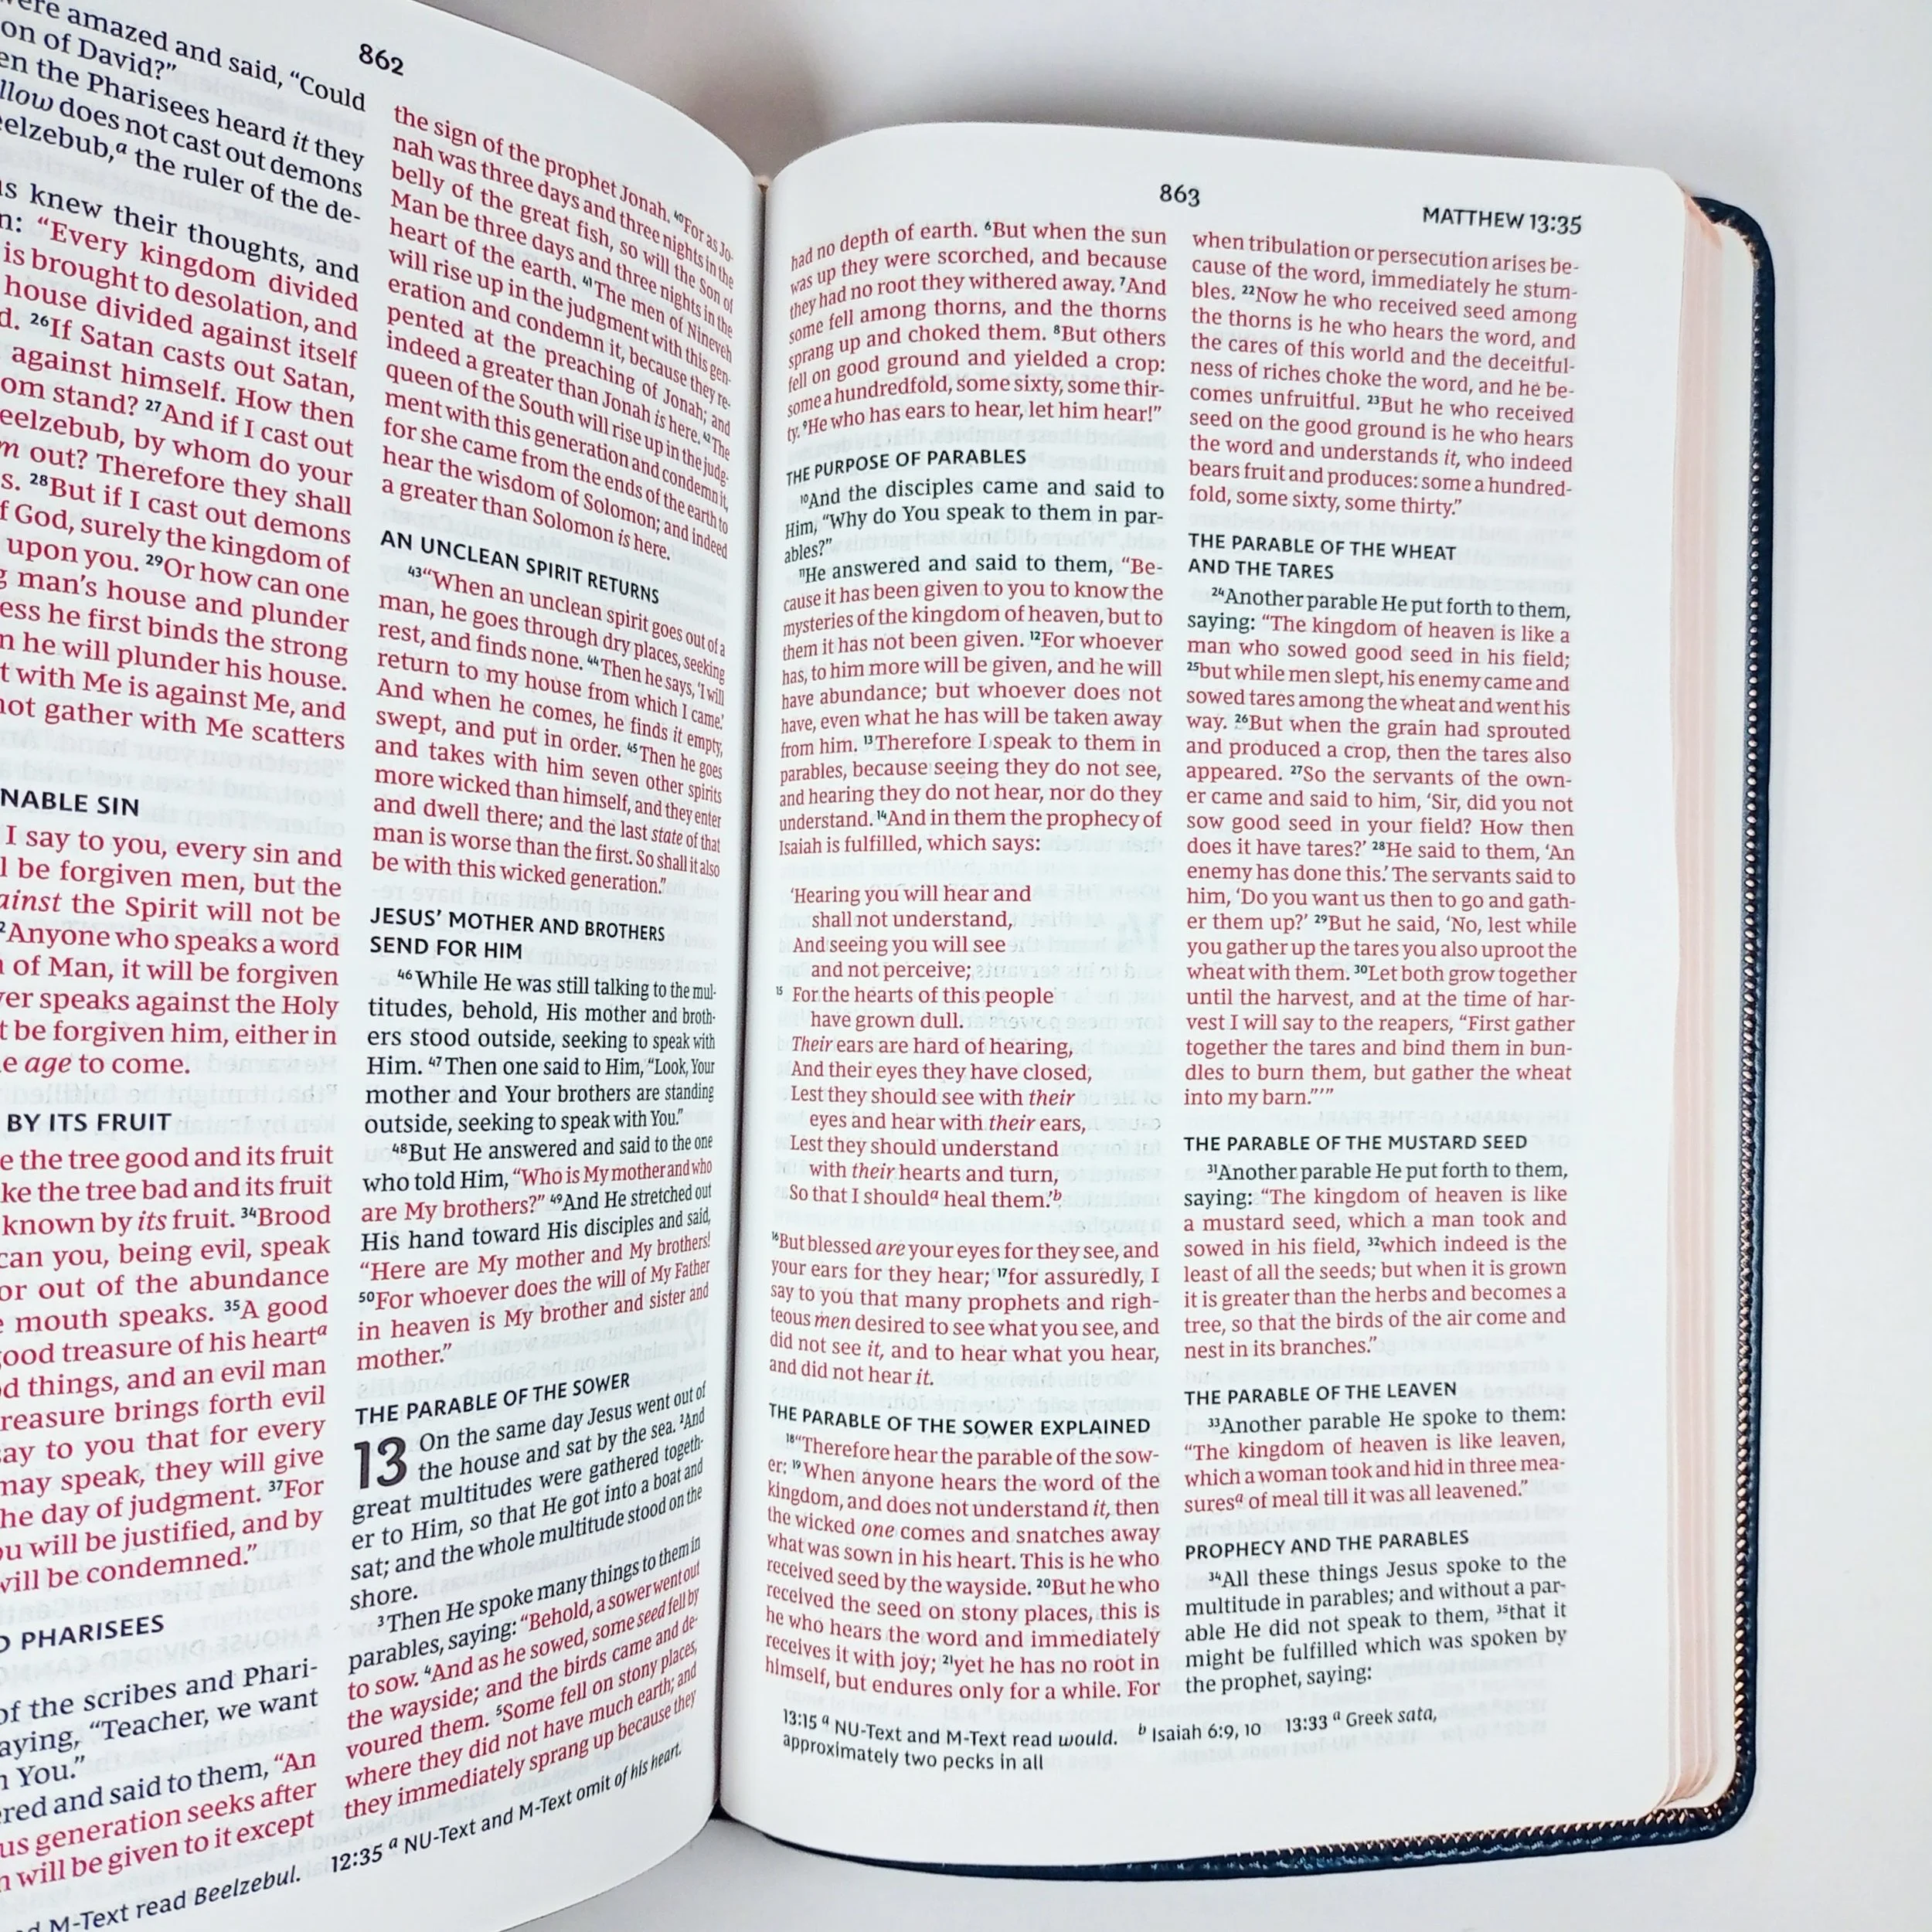 862
were amazed and said, “Could
on of David?”
en the Pharisees heard it they
llow does not cast out demons
eelzebub,a the ruler of the de-
us knew their thoughts, and
n: “Every kingdom divided
is brought to desolation, and
house divided against itself
d. 26If Satan casts out Satan,
against himself. How then
om stand? 27And if I cast out
eelzebub, by whom do your
m out? Therefore they shall
s. 28But if I cast out demons
f God, surely the kingdom of
upon you. 29Or how can one
g man’s house and plunder
ess he first binds the strong
n he will plunder his house.
t with Me is against Me, and
not gather with Me scatters
NABLE SIN
I say to you, every sin and
l be forgiven men, but the
ainst the Spirit will not be
2Anyone who speaks a word
n of Man, it will be forgiven
ver speaks against the Holy
t be forgiven him, either in
e age to come.
BY ITS FRUIT
e the tree good and its fruit
ke the tree bad and its fruit
known by its fruit. 34Brood
can you, being evil, speak
or out of the abundance
e mouth speaks. 35A good
ood treasure of his hearta
d things, and an evil man
reasure brings forth evil
say to you that for every
may speak, they will give
he day of judgment. 37For
ou will be justified, and by
will be condemned.”
D PHARISEES
of the scribes and Phari-
aying, “Teacher, we want
n You.”
ered and said to them, “An
us generation seeks after
n will be given to it except
the sign of the prophet Jonah. 40For as Jo-
nah was three days and three nights in the
belly of the great fish, so will the Son of
Man be three days and three nights in the
heart of the earth. 41The men of Nineveh
will rise up in the judgment with this gen-
eration and condemn it, because they re-
pented at the preaching of Jonah; and
indeed a greater than Jonah is here. 42The
queen of the South will rise up in the judg-
ment with this generation and condemn it,
for she came from the ends of the earth to
hear the wisdom of Solomon; and indeed
a greater than Solomon is here.
AN UNCLEAN SPIRIT RETURNS
43“When an unclean spirit goes out of a
man, he goes through dry places, seeking
rest, and finds none. 44Then he says, ‘I will
return to my house from which I came.’
And when he comes, he finds it empty,
swept, and put in order. 45Then he goes
and takes with him seven other spirits
more wicked than himself, and they enter
and dwell there; and the last state of that
man is worse than the first. So shall it also
be with this wicked generation.”
JESUS’ MOTHER AND BROTHERS
SEND FOR HIM
46While He was still talking to the mul-
titudes, behold, His mother and broth-
ers stood outside, seeking to speak with
Him. 47Then one said to Him, “Look, Your
mother and Your brothers are standing
outside, seeking to speak with You.”
48But He answered and said to the one
who told Him, “Who is My mother and who
are My brothers?” 49And He stretched out
His hand toward His disciples and said,
“Here are My mother and My brothers!
50For whoever does the will of My Father
in heaven is My brother and sister and
mother.”
THE PARABLE OF THE SOWER
13 On the same day Jesus went out of
the house and sat by the sea. 2And
great multitudes were gathered togeth-
er to Him, so that He got into a boat and
sat; and the whole multitude stood on the
shore.
3Then He spoke many things to them in
parables, saying: “Behold, a sower went out
to sow. 4And as he sowed, some seed fell by
the wayside; and the birds came and de-
voured them. 5Some fell on stony places,
where they did not have much earth; and
they immediately sprang up because they
M-Text read Beelzebul. 12:35 a NU-Text and M-Text omit of his heart.
863
MATTHEW 13:35
had no depth of earth. 6But when the sun
was up they were scorched, and because
they had no root they withered away. 7And
some fell among thorns, and the thorns
sprang up and choked them. 8But others
fell on good ground and yielded a crop:
some a hundredfold, some sixty, some thir-
ty. 9He who has ears to hear, let him hear!”
THE PURPOSE OF PARABLES
10And the disciples came and said to
Him, “Why do You speak to them in par-
ables?”
11He answered and said to them, “Be-
cause it has been given to you to know the
mysteries of the kingdom of heaven, but to
them it has not been given. 12For whoever
has, to him more will be given, and he will
have abundance; but whoever does not
have, even what he has will be taken away
from him. 13Therefore I speak to them in
parables, because seeing they do not see,
and hearing they do not hear, nor do they
understand. 14And in them the prophecy of
Isaiah is fulfilled, which says:
‘Hearing you will hear and
shall not understand,
And seeing you will see
and not perceive;
15 For the hearts of this people
have grown dull.
Their ears are hard of hearing,
And their eyes they have closed,
Lest they should see with their
eyes and hear with their ears,
Lest they should understand
with their hearts and turn,
So that I shoulda heal them.’b
16But blessed are your eyes for they see, and
your ears for they hear; 17for assuredly, I
say to you that many prophets and righ-
teous men desired to see what you see, and
did not see it, and to hear what you hear,
and did not hear it.
THE PARABLE OF THE SOWER EXPLAINED
18“Therefore hear the parable of the sow-
er: 19When anyone hears the word of the
kingdom, and does not understand it, then
the wicked one comes and snatches away
what was sown in his heart. This is he who
received seed by the wayside. 20But he who
received the seed on stony places, this is
he who hears the word and immediately
receives it with joy; 21yet he has no root in
himself, but endures only for a while. For
when tribulation or persecution arises be-
cause of the word, immediately he stum-
bles. 22Now he who received seed among
the thorns is he who hears the word, and
the cares of this world and the deceitful-
ness of riches choke the word, and he be-
comes unfruitful. 23But he who received
seed on the good ground is he who hears
the word and understands it, who indeed
bears fruit and produces: some a hundred-
fold, some sixty, some thirty.”
THE PARABLE OF THE WHEAT
AND THE TARES
24Another parable He put forth to them,
saying: “The kingdom of heaven is like a
man who sowed good seed in his field;
25but while men slept, his enemy came and
sowed tares among the wheat and went his
way. 26But when the grain had sprouted
and produced a crop, then the tares also
appeared. 27So the servants of the own-
er came and said to him, ‘Sir, did you not
sow good seed in your field? How then
does it have tares?’ 28He said to them, ‘An
enemy has done this.’ The servants said to
him, ‘Do you want us then to go and gath-
er them up?’ 29But he said, ‘No, lest while
you gather up the tares you also uproot the
wheat with them. 30Let both grow together
until the harvest, and at the time of har-
vest I will say to the reapers, “First gather
together the tares and bind them in bun-
dles to burn them, but gather the wheat
into my barn.”’”
THE PARABLE OF THE MUSTARD SEED
31Another parable He put forth to them,
saying: “The kingdom of heaven is like
a mustard seed, which a man took and
sowed in his field, 32which indeed is the
least of all the seeds; but when it is grown
it is greater than the herbs and becomes a
tree, so that the birds of the air come and
nest in its branches.”
THE PARABLE OF THE LEAVEN
33Another parable He spoke to them:
“The kingdom of heaven is like leaven,
which a woman took and hid in three mea-
suresa of meal till it was all leavened.”
PROPHECY AND THE PARABLES
34All these things Jesus spoke to the
multitude in parables; and without a par-
able He did not speak to them, 35that it
might be fulfilled which was spoken by
the prophet, saying:
13:15 a NU-Text and M-Text read would. b Isaiah 6:9, 10 13:33 a Greek sata,
approximately two pecks in all